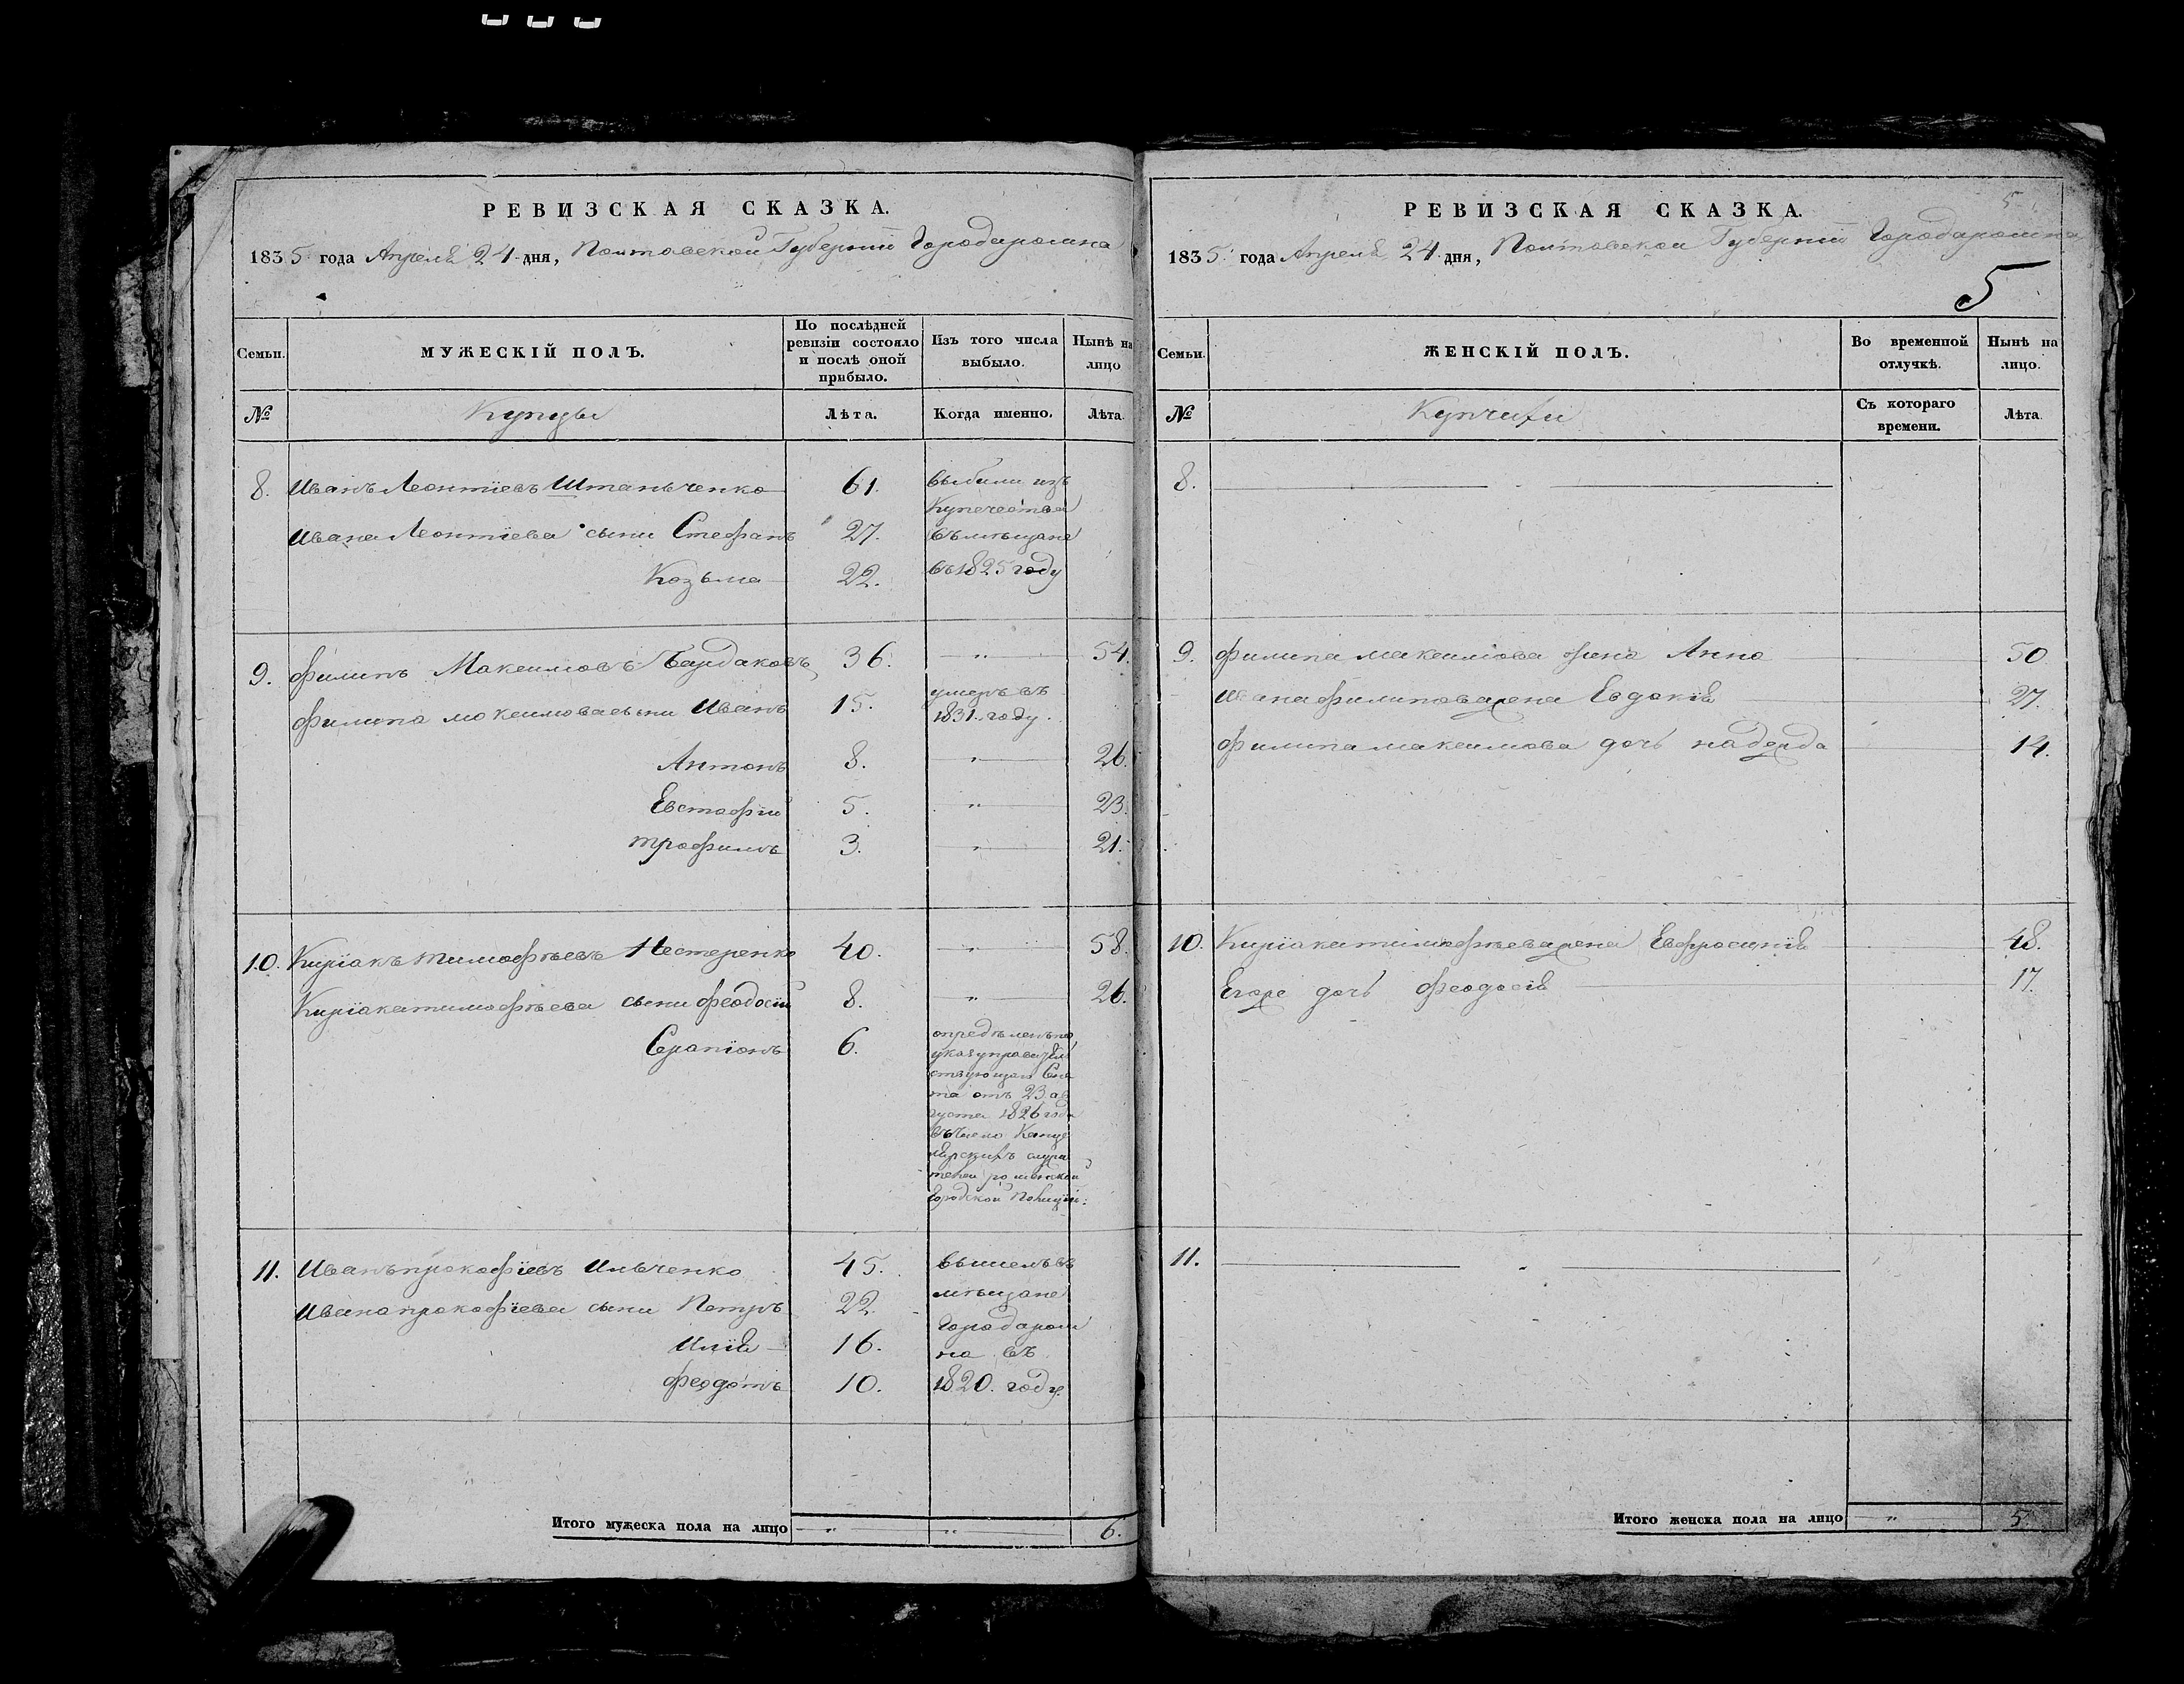 РЕВИЗСКАЯ СКАЗКА.
1835 года Апреля 24 дня, Полтавской Губернии Города Ромна
Семьи.
МУЖЕСКІЙ ПОЛЪ.
По послѣдней ревизіи состояло и послѣ оной прибыло.
Изъ того числа выбыло.
Нынѣ на лицо
№
Купцы
Лѣта.
Когда именно.
Лѣта.
8. Иванъ Леонтіевъ Штаньченко 61. выбыли изъ
Купечества
Ивана Леонтіева сыны Стефанъ 27. въ мѣщане
Козьма 22. въ 1825 году
9. Филипъ Максимовъ Бардаковъ 36. 〃 54.
Филипа Максимова сыны Иванъ 15. умеръ въ
1831. году.
Антонъ 8. 〃 26.
Евстафій 5. 〃 23.
Трофимъ 3. 〃 21.
10. Киріакъ Тимофѣевъ Нестеренко 40. 〃 58.
Киріака Тимофѣева сыны Феодосій 8. 〃 26.
Серапіонъ 6. опредѣленъ по
указу правитель
ствующаго Сена
та отъ 23. ав
густа 1826 года
въ число Канце
лярскихъ служи
телей роменской
городской Полиціи:
11. Иванъ Прокофіевъ Ильченко 45. вышелъ въ
Ивана Прокофіева сыны Петръ 22. мѣщане
Города Ром
Илія 16. на въ
Феодотъ 10. 1820. году.
Итого мужеска пола на лицо 〃 〃 6.
5
РЕВИЗСКАЯ СКАЗКА.
1835 года Апреля 24 дня, Полтавской Губерніи Города Ромна
5
Семьи.
ЖЕНСКІЙ ПОЛЪ.
Во временной отлучкѣ.
Нынѣ на лицо.
№
Купчихи
Съ котораго времени.
Лѣта.
8.
9. Филипа Максимова жена Анна 50
Ивана Филипова жена Евдокія 27.
Филипа Максимова дочь Надежда 14.
10. Киріака Тимофѣева жена Евфросинія 48.
Егоже дочь Феодосія 17.
11.
Итого женска пола на лицо 〃 5